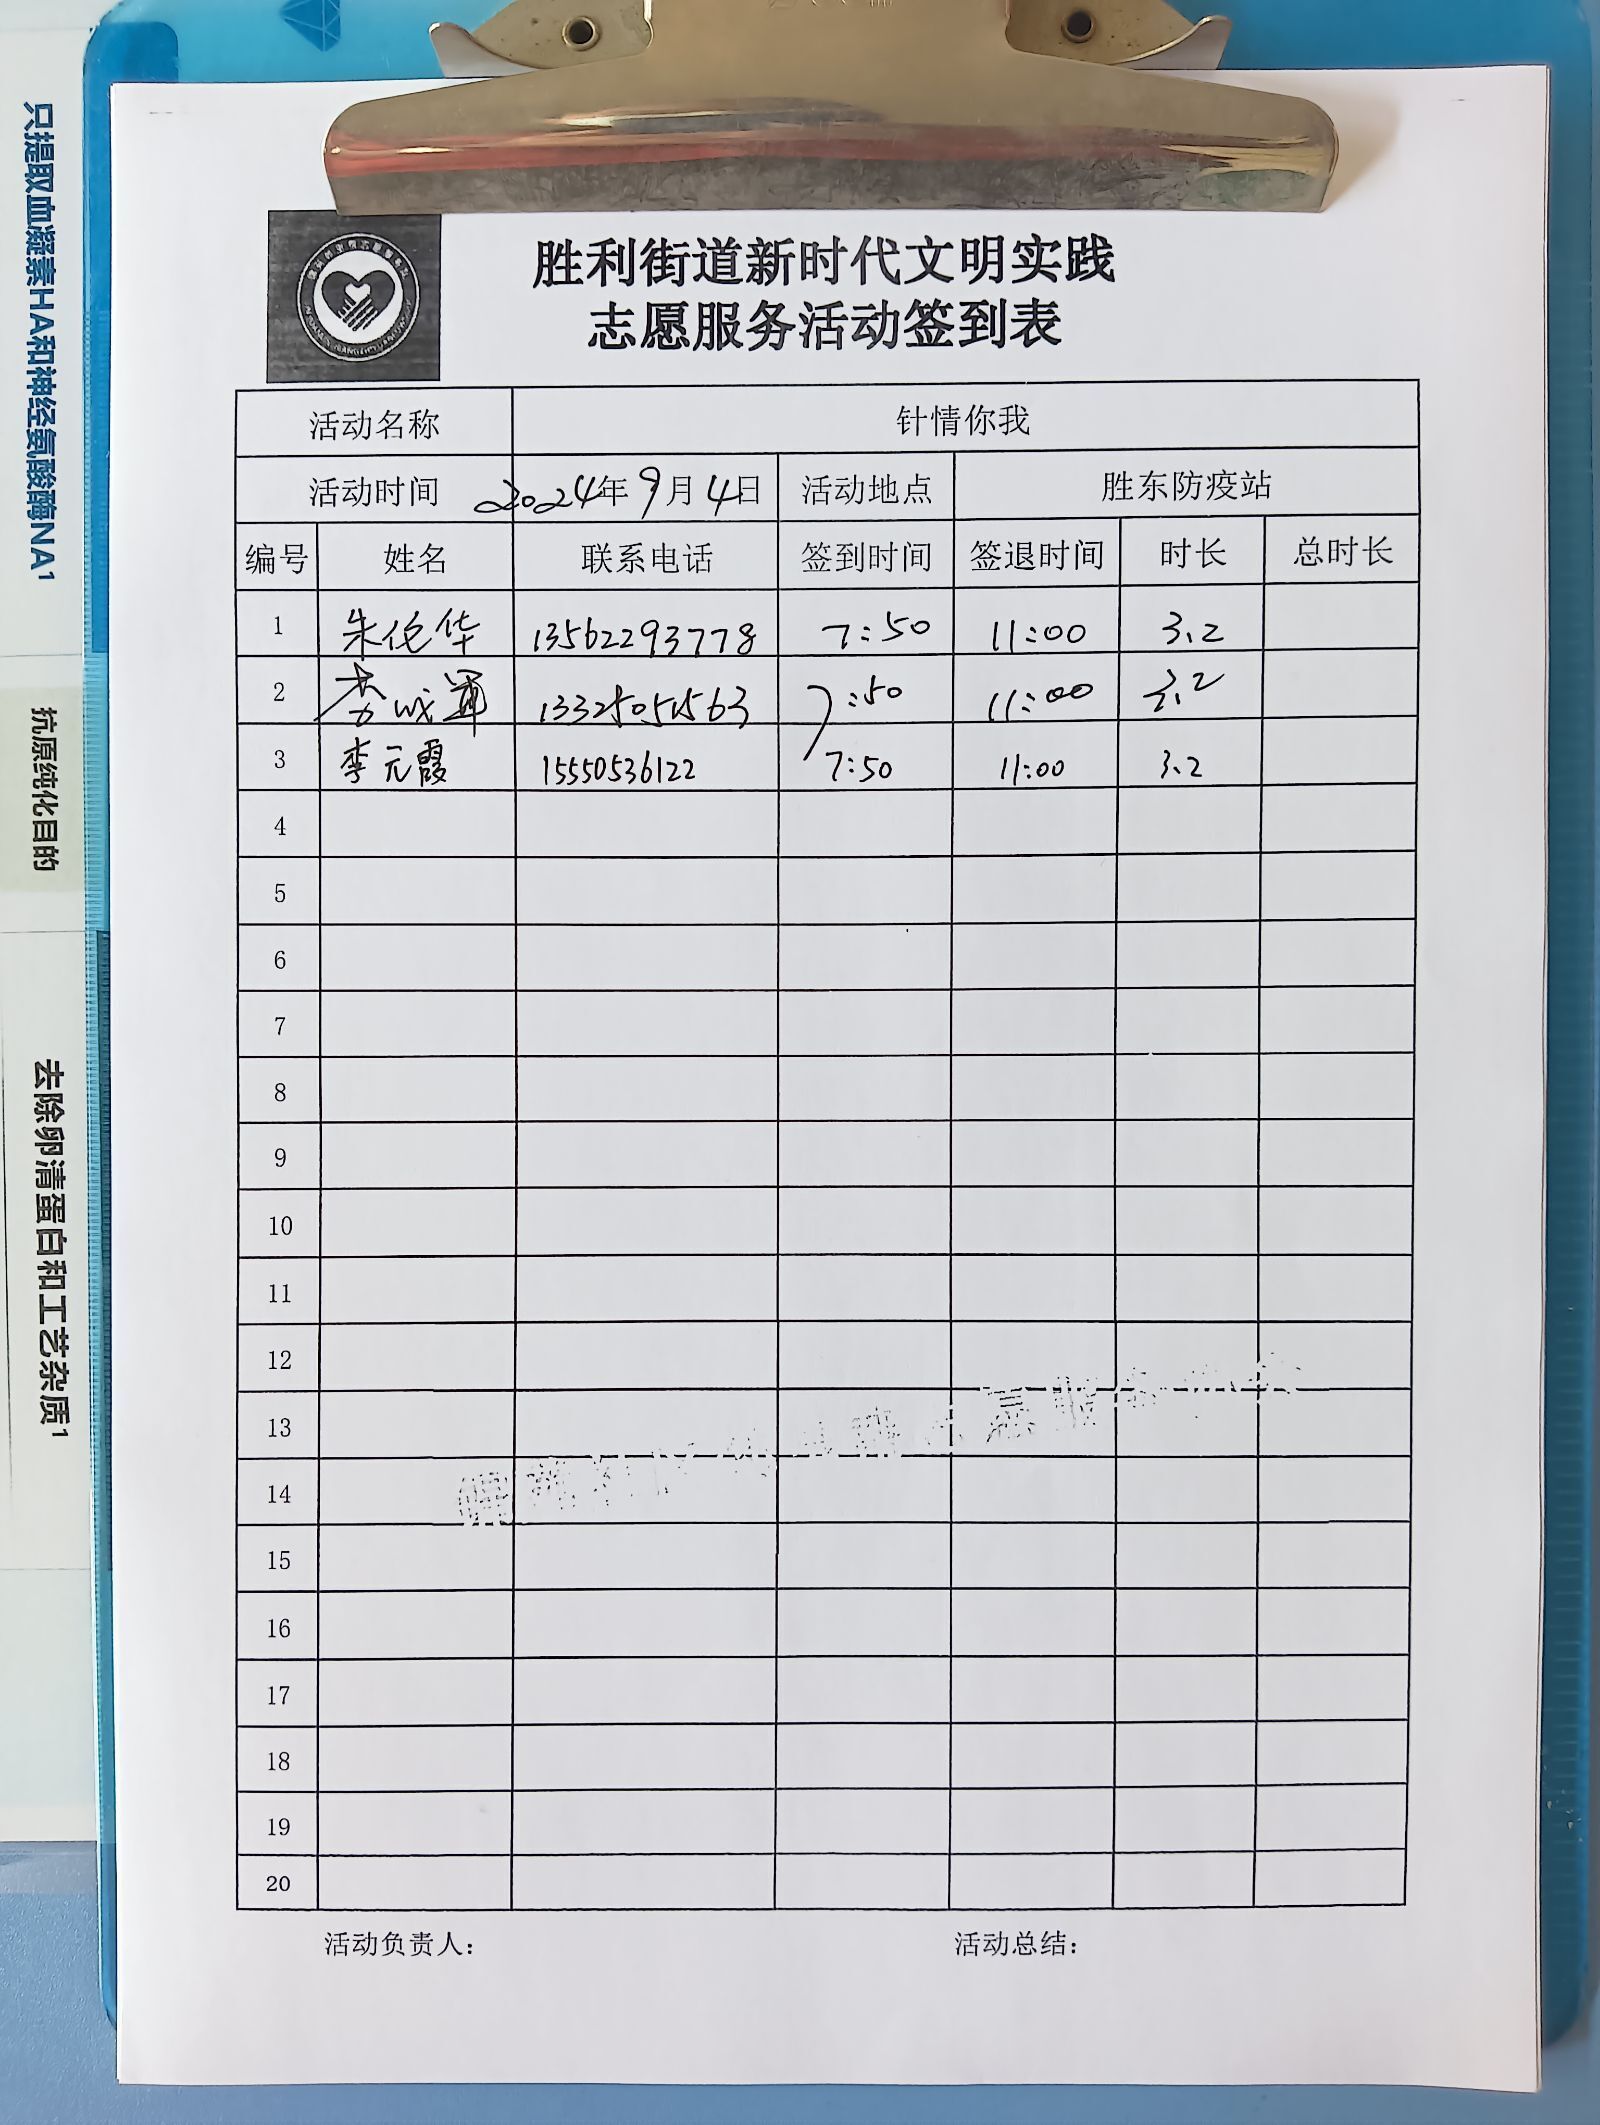 只提取血凝素HA和神经氨酸酶NA¹
抗原纯化目的
去除卵清蛋白和工艺杂质¹
胜利街道新时代文明实践
志愿服务活动签到表
活动名称 针情你我
活动时间 2024年9月4日 活动地点 胜东防疫站
编号 姓名 联系电话 签到时间 签退时间 时长 总时长
1 朱伦华 13562293778 7:50 11:00 3.2
2 李成军 13325051563 7:50 11:00 3.2
3 李元霞 15550536122 7:50 11:00 3.2
4
5
6
7
8
9
10
11
12
13
14
15
16
17
18
19
20
活动负责人： 活动总结：